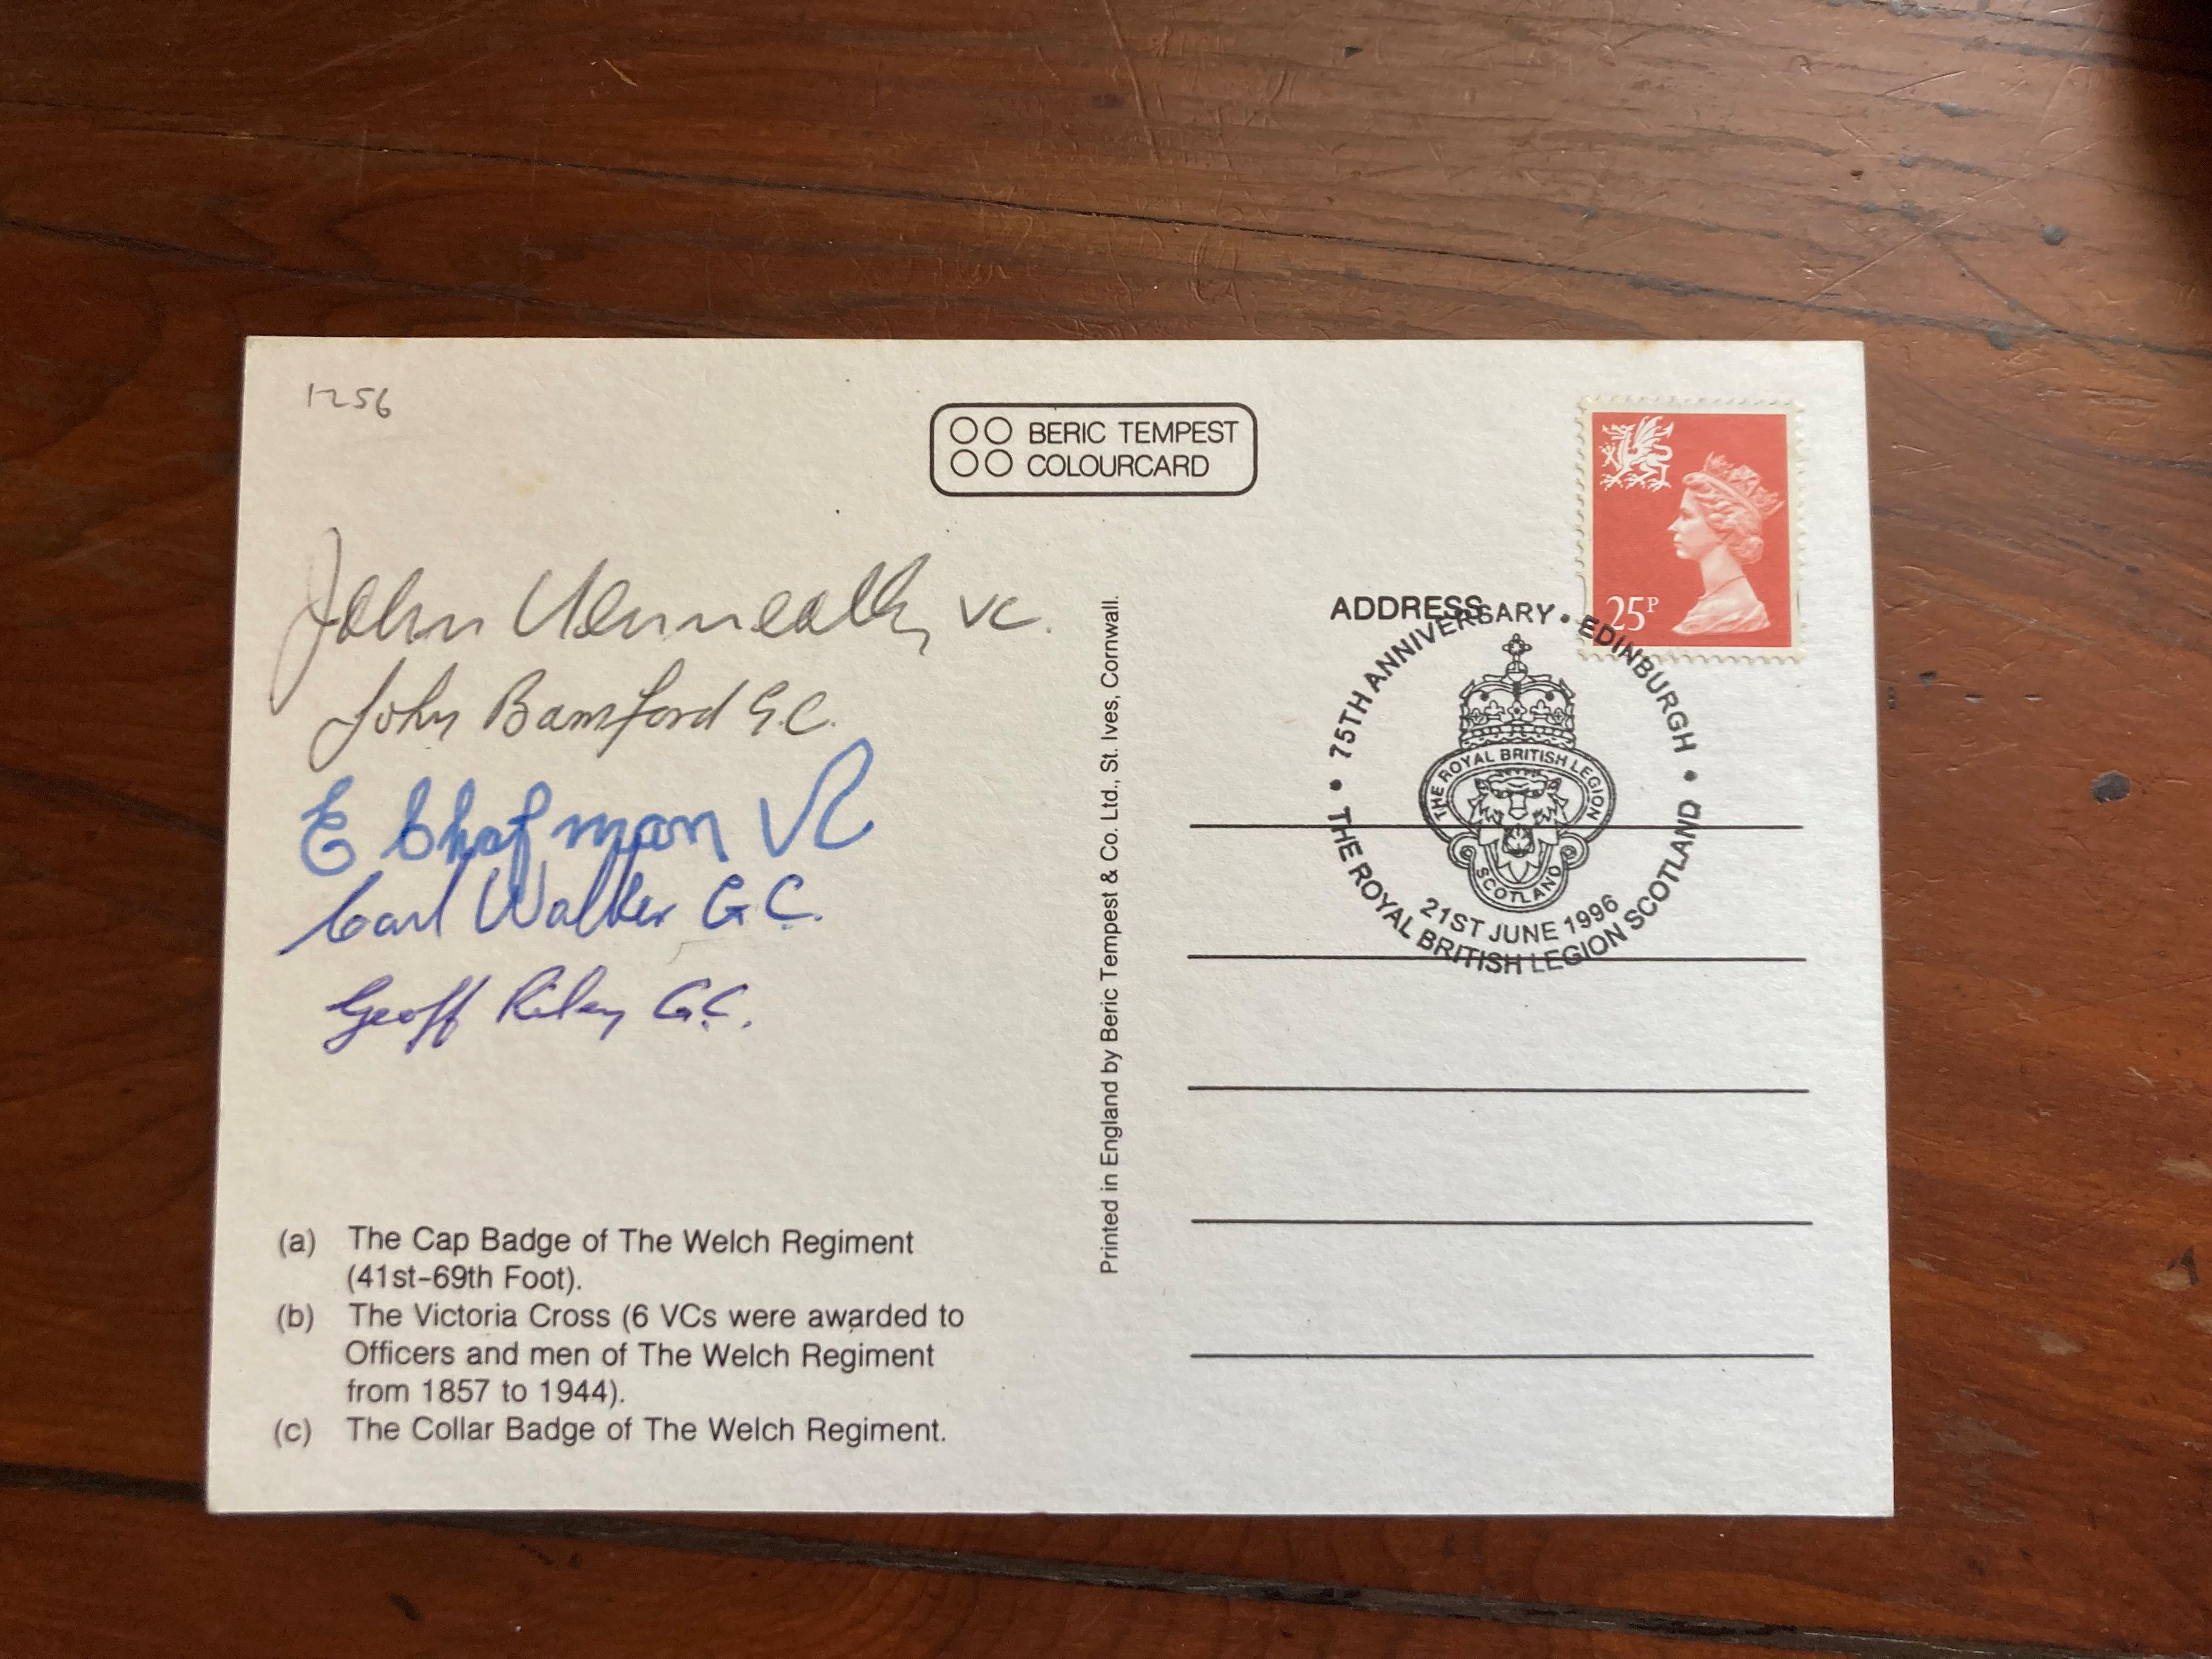 1256
BERIC TEMPEST
COLOURCARD
John Kenneally VC.
John Bamford G.C.
E Chapman VC
Carl Walker G.C.
Geoff Riley G.C.
(a) The Cap Badge of The Welch Regiment
(41st–69th Foot).
(b) The Victoria Cross (6 VCs were awarded to
Officers and men of The Welch Regiment
from 1857 to 1944).
(c) The Collar Badge of The Welch Regiment.
Printed in England by Beric Tempest & Co. Ltd., St. Ives, Cornwall.
25P
ADDRESS
• 75TH ANNIVERSARY • EDINBURGH •
THE ROYAL BRITISH LEGION
SCOTLAND
21ST JUNE 1996
THE ROYAL BRITISH LEGION SCOTLAND